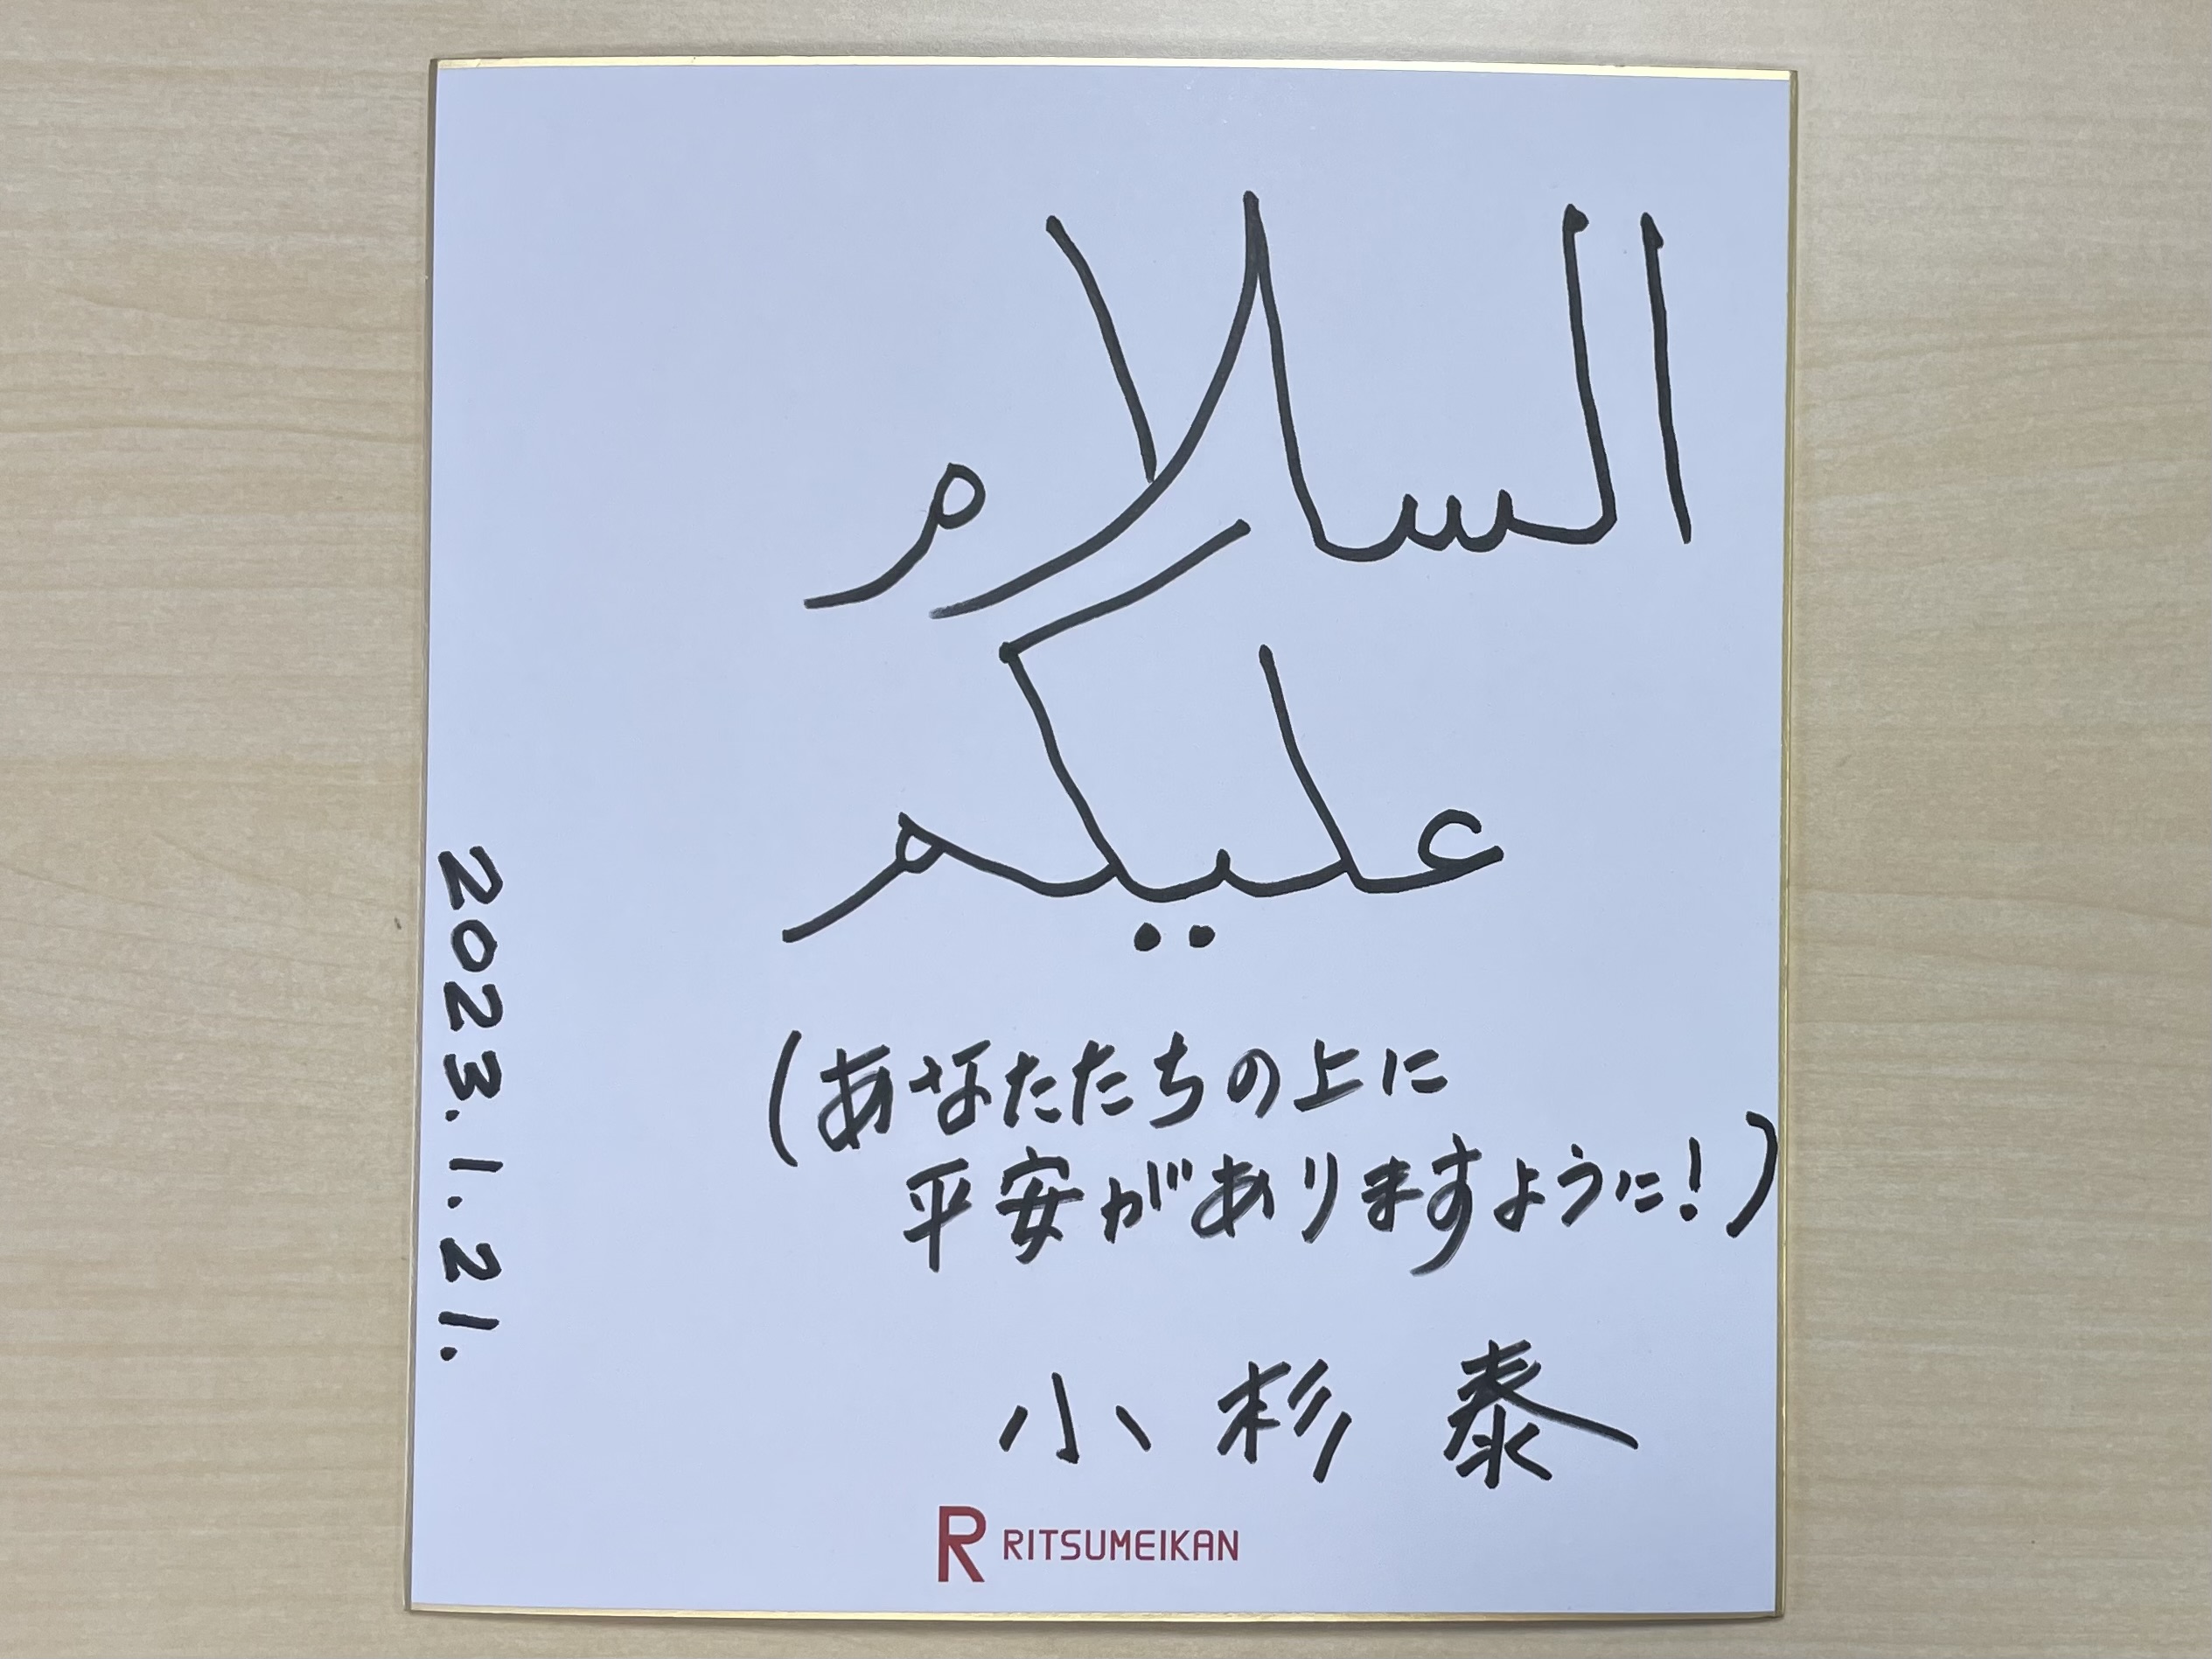 السلام
عليكم
(あなたたちの上に
平安がありますように!)
小杉 泰
2023.1.21.
R RITSUMEIKAN